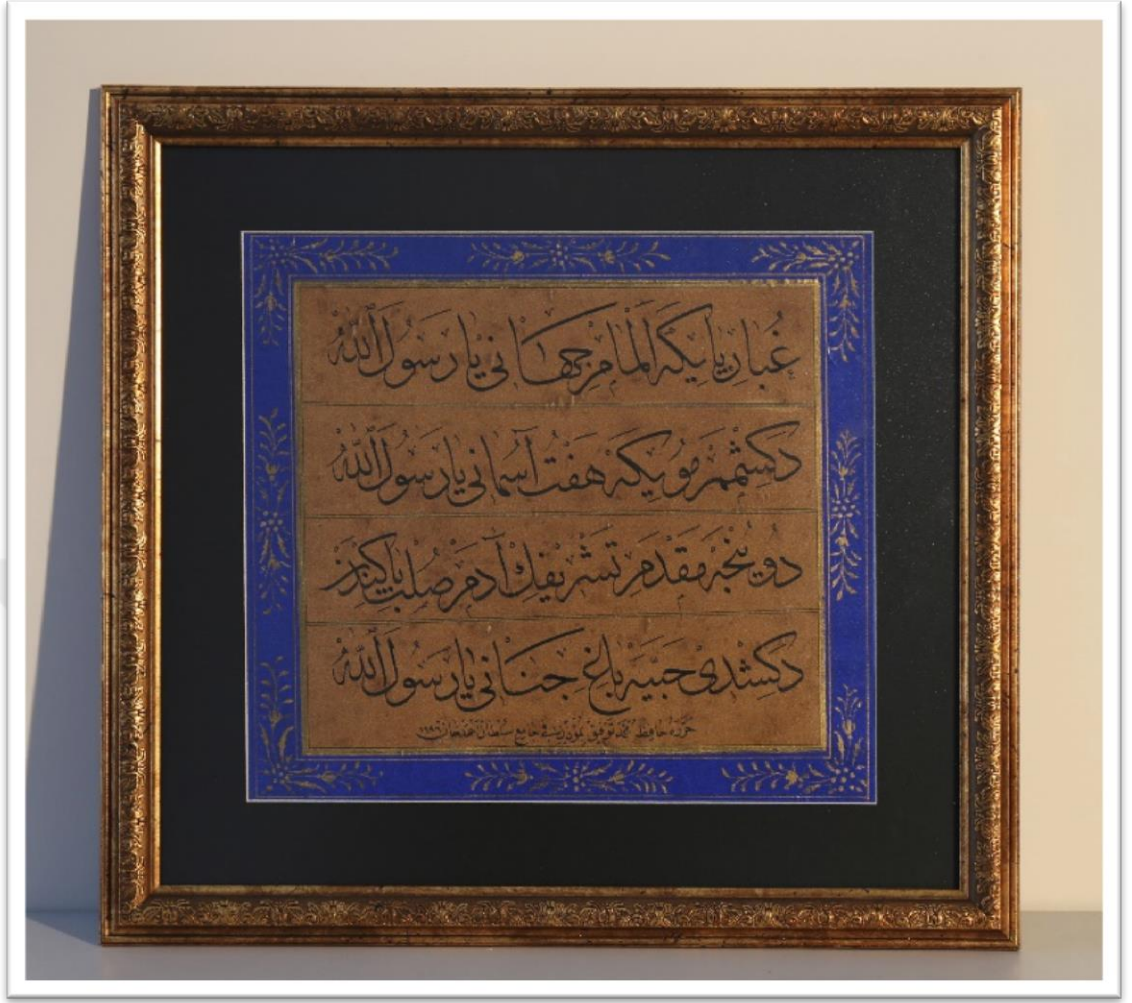 غُبارِ پایكه المام جهانی یا رسولَ الله
دكشمم مویكه هفت آسمانی یا رسولَ الله
دوینجه مقدم تشریفك آدم صلب پاكندن
دكشدی حبیه باغِ جنانی یا رسولَ الله
حرره حافظ محمد توفیق المؤذن فی جامع سلطان احمد خان